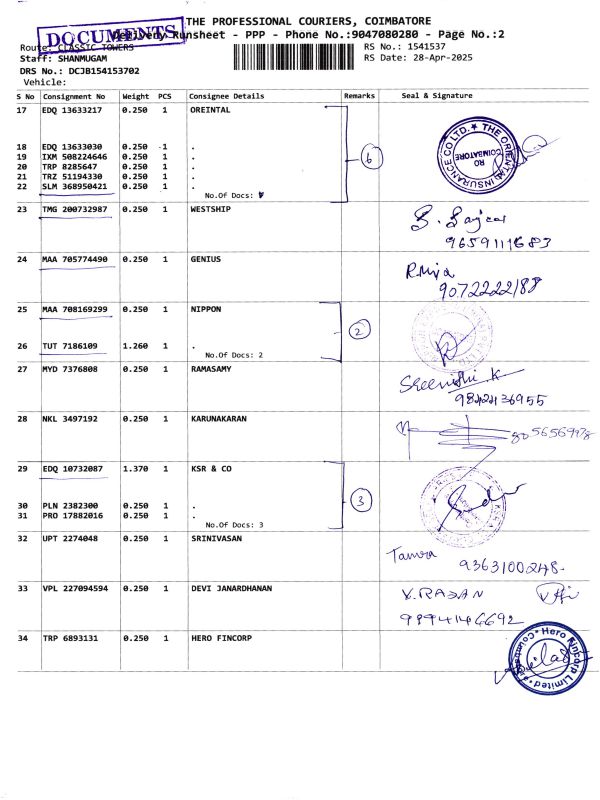 THE PROFESSIONAL COURIERS, COIMBATORE
DOCUMENTS
Delivery Runsheet - PPP - Phone No.:9047080280 - Page No.:2
Route: CLASSIC TOWERS
RS No.: 1541537
Staff: SHANMUGAM
RS Date: 28-Apr-2025
DRS No.: DCJB154153702
Vehicle:
S No Consignment No Weight PCS Consignee Details Remarks Seal & Signature
17 EDQ 13633217 0.250 1 OREINTAL
18 EDQ 13633030 0.250 1 .
19 IXM 508224646 0.250 1 .
20 TRP 8285647 0.250 1 .
21 TRZ 51194330 0.250 1 .
22 SLM 368950421 0.250 1 .
No.Of Docs:
6
THE ORIENTAL INSURANCE CO LTD.
RO
COIMBATORE
23 TMG 200732987 0.250 1 WESTSHIP
24 MAA 705774490 0.250 1 GENIUS
9072222188
25 MAA 708169299 0.250 1 NIPPON
26 TUT 7186109 1.260 1 .
No.Of Docs: 2
2
27 MYD 7376808 0.250 1 RAMASAMY
9842136955
28 NKL 3497192 0.250 1 KARUNAKARAN
29 EDQ 10732087 1.370 1 KSR & CO
30 PLN 2382300 0.250 1 .
31 PRO 17882016 0.250 1 .
No.Of Docs: 3
3
32 UPT 2274048 0.250 1 SRINIVASAN
9363100248
33 VPL 227094594 0.250 1 DEVI JANARDHANAN
V.RAJAN
9994146692
34 TRP 6893131 0.250 1 HERO FINCORP
Hero Fincorp Limited